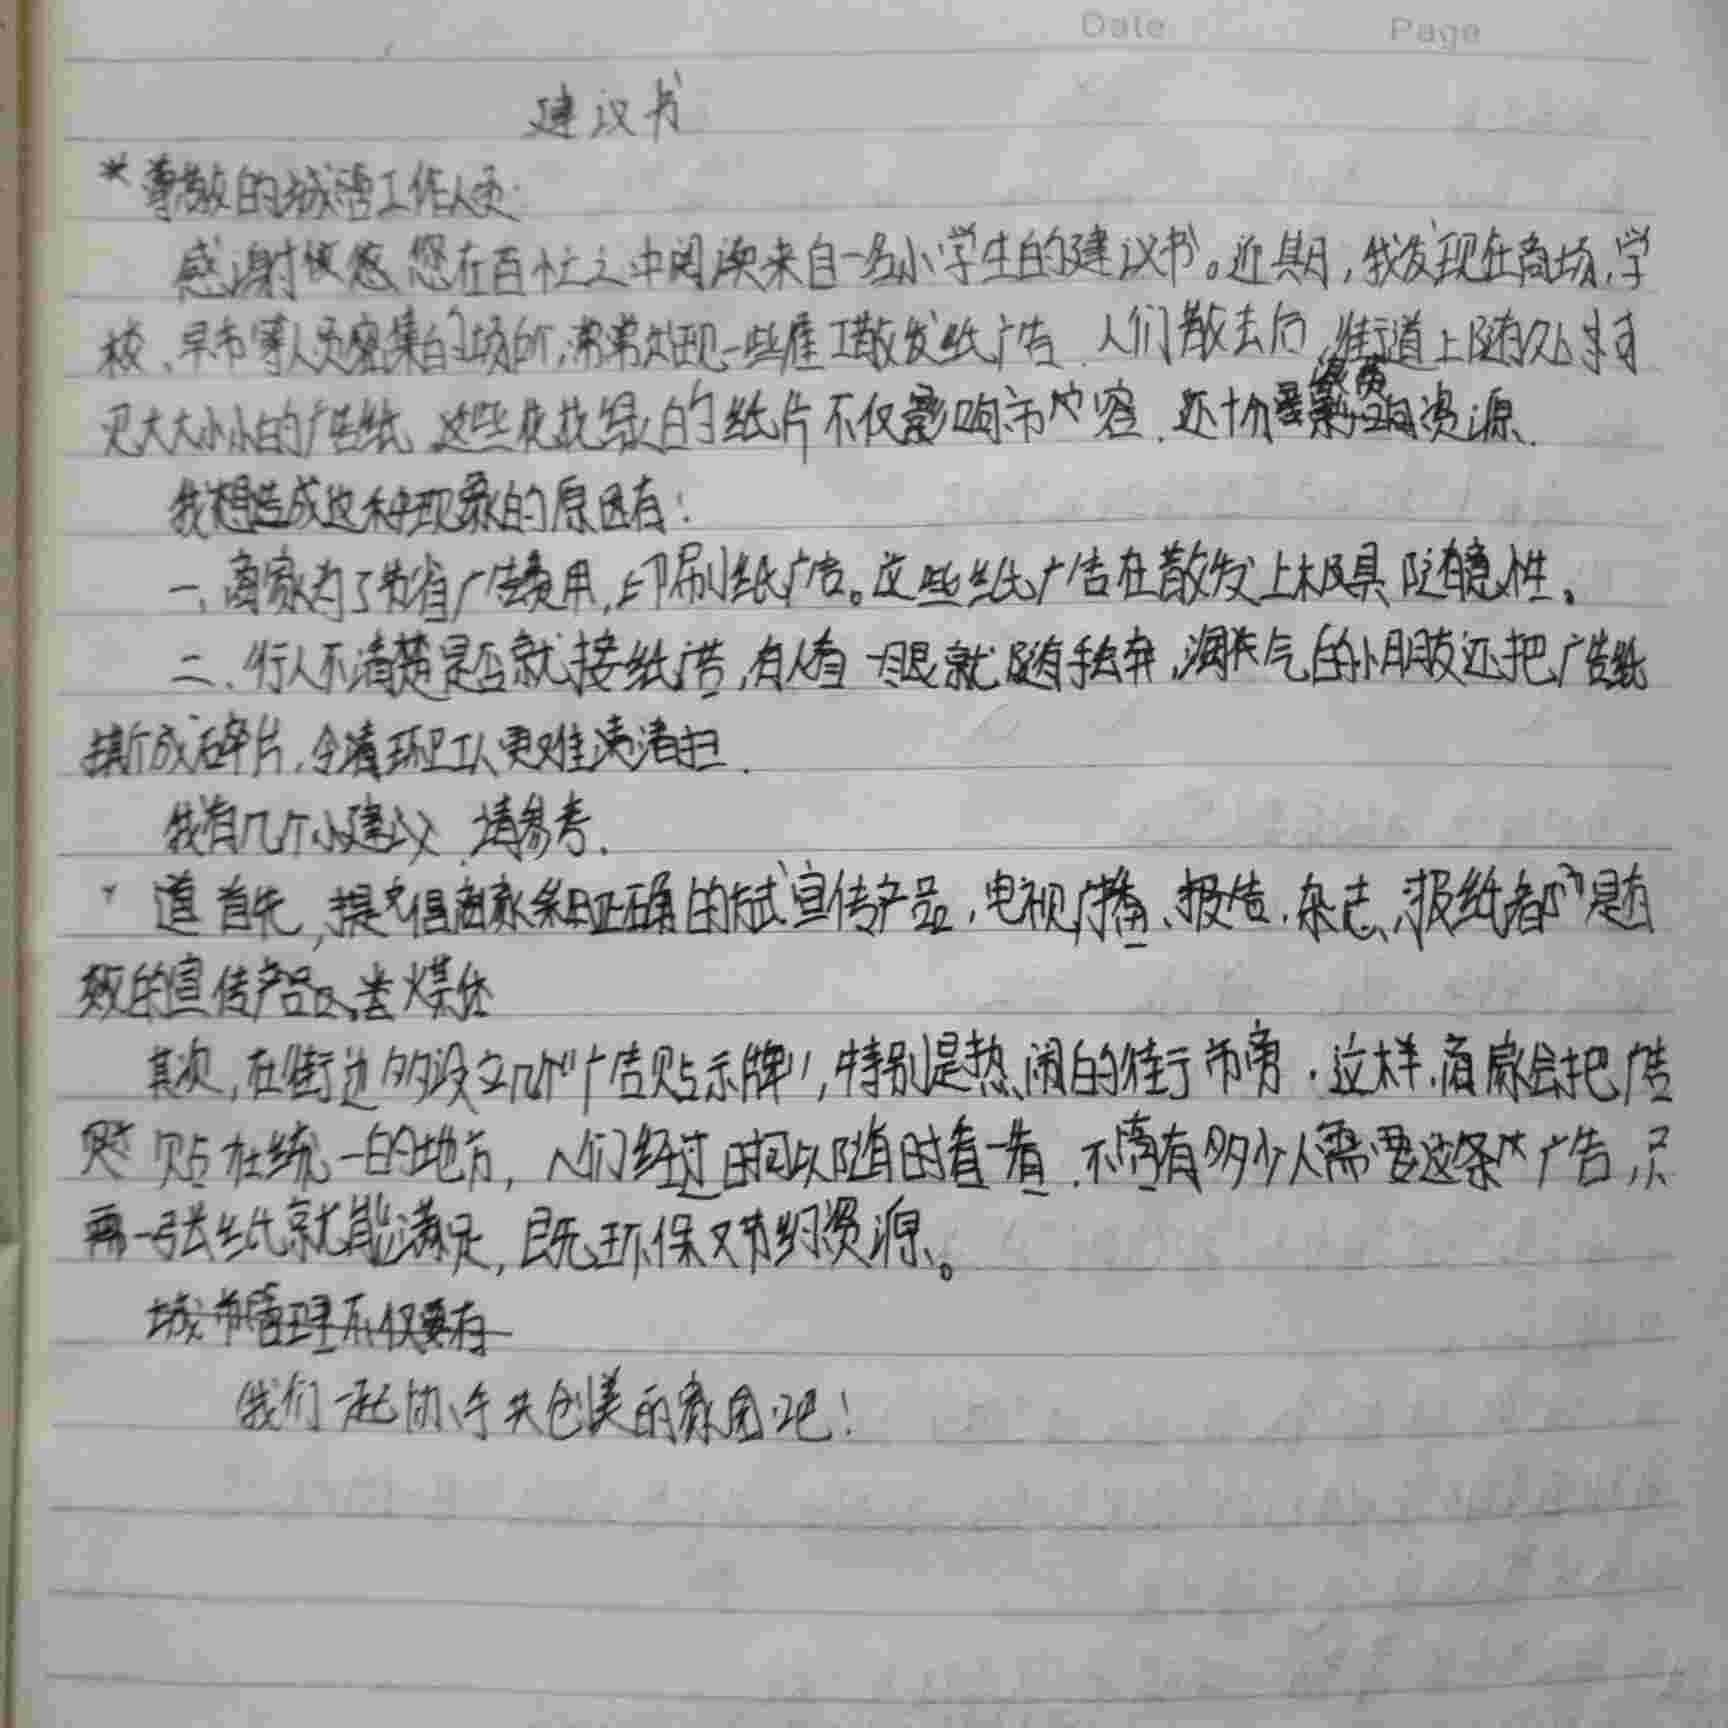 Date Page
建议书
*尊敬的城管工作人员:
感谢您在百忙之中阅读来自一名小学生的建议书。近期,我发现在商场、学
校、早市等人员密集的场所,常常出现一些雇工散发纸广告.人们散去后,街道上随处可
见大大小小的广告纸.这些花花绿绿的纸片不仅影响市容.还十分浪费资源.
我想造成这种现象的原因有:
一、商家为了节省广告费用,印刷纸广告。这些纸广告在散发上极具随意性。
二、行人不清楚是否就接纸广告,有人看一眼就随手丢弃,淘气的小朋友还把广告纸
撕成碎片,令环卫工人更难清扫.
我有几个小建议.请参考.
首先,提倡商家采用正确的方式宣传产品,电视广播、报告、杂志、报纸都是有
效的宣传产品媒体
其次,在街边多设立几个"广告贴示牌",特别是热闹的街市旁.这样,商家会把广告
贴在统一的地方,人们经过时可以随时看一看.不管有多少人需要这条广告,只
需一张纸就能满足,既环保又节约资源。
城市管理不仅要有
我们一起协手共创美的家园吧!